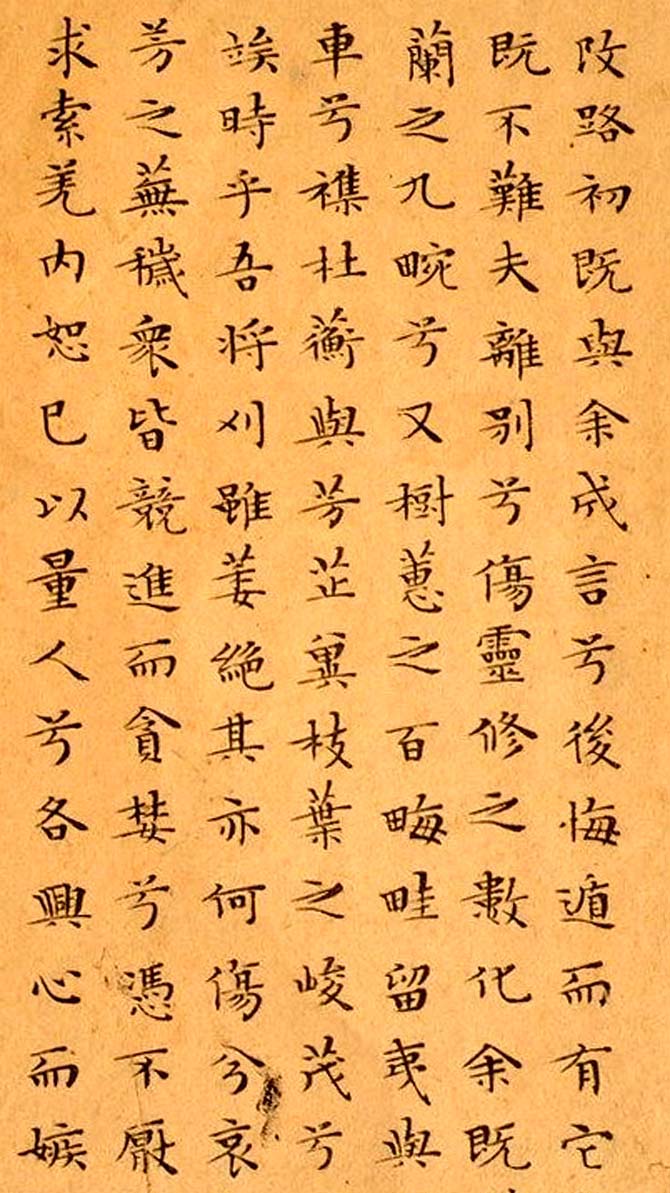 攺路初既與余成言兮後悔遁而有它
既不難夫離別兮傷靈修之數化余既
蘭之九畹兮又樹蕙之百畮畦留夷與
車兮襍杜蘅與芳芷兾枝葉之峻茂兮
竢時乎吾將刈雖萎絕其亦何傷兮哀
芳之蕪穢衆皆競進而貪婪兮慿不厭
求索羌内恕己以量人兮各興心而嫉